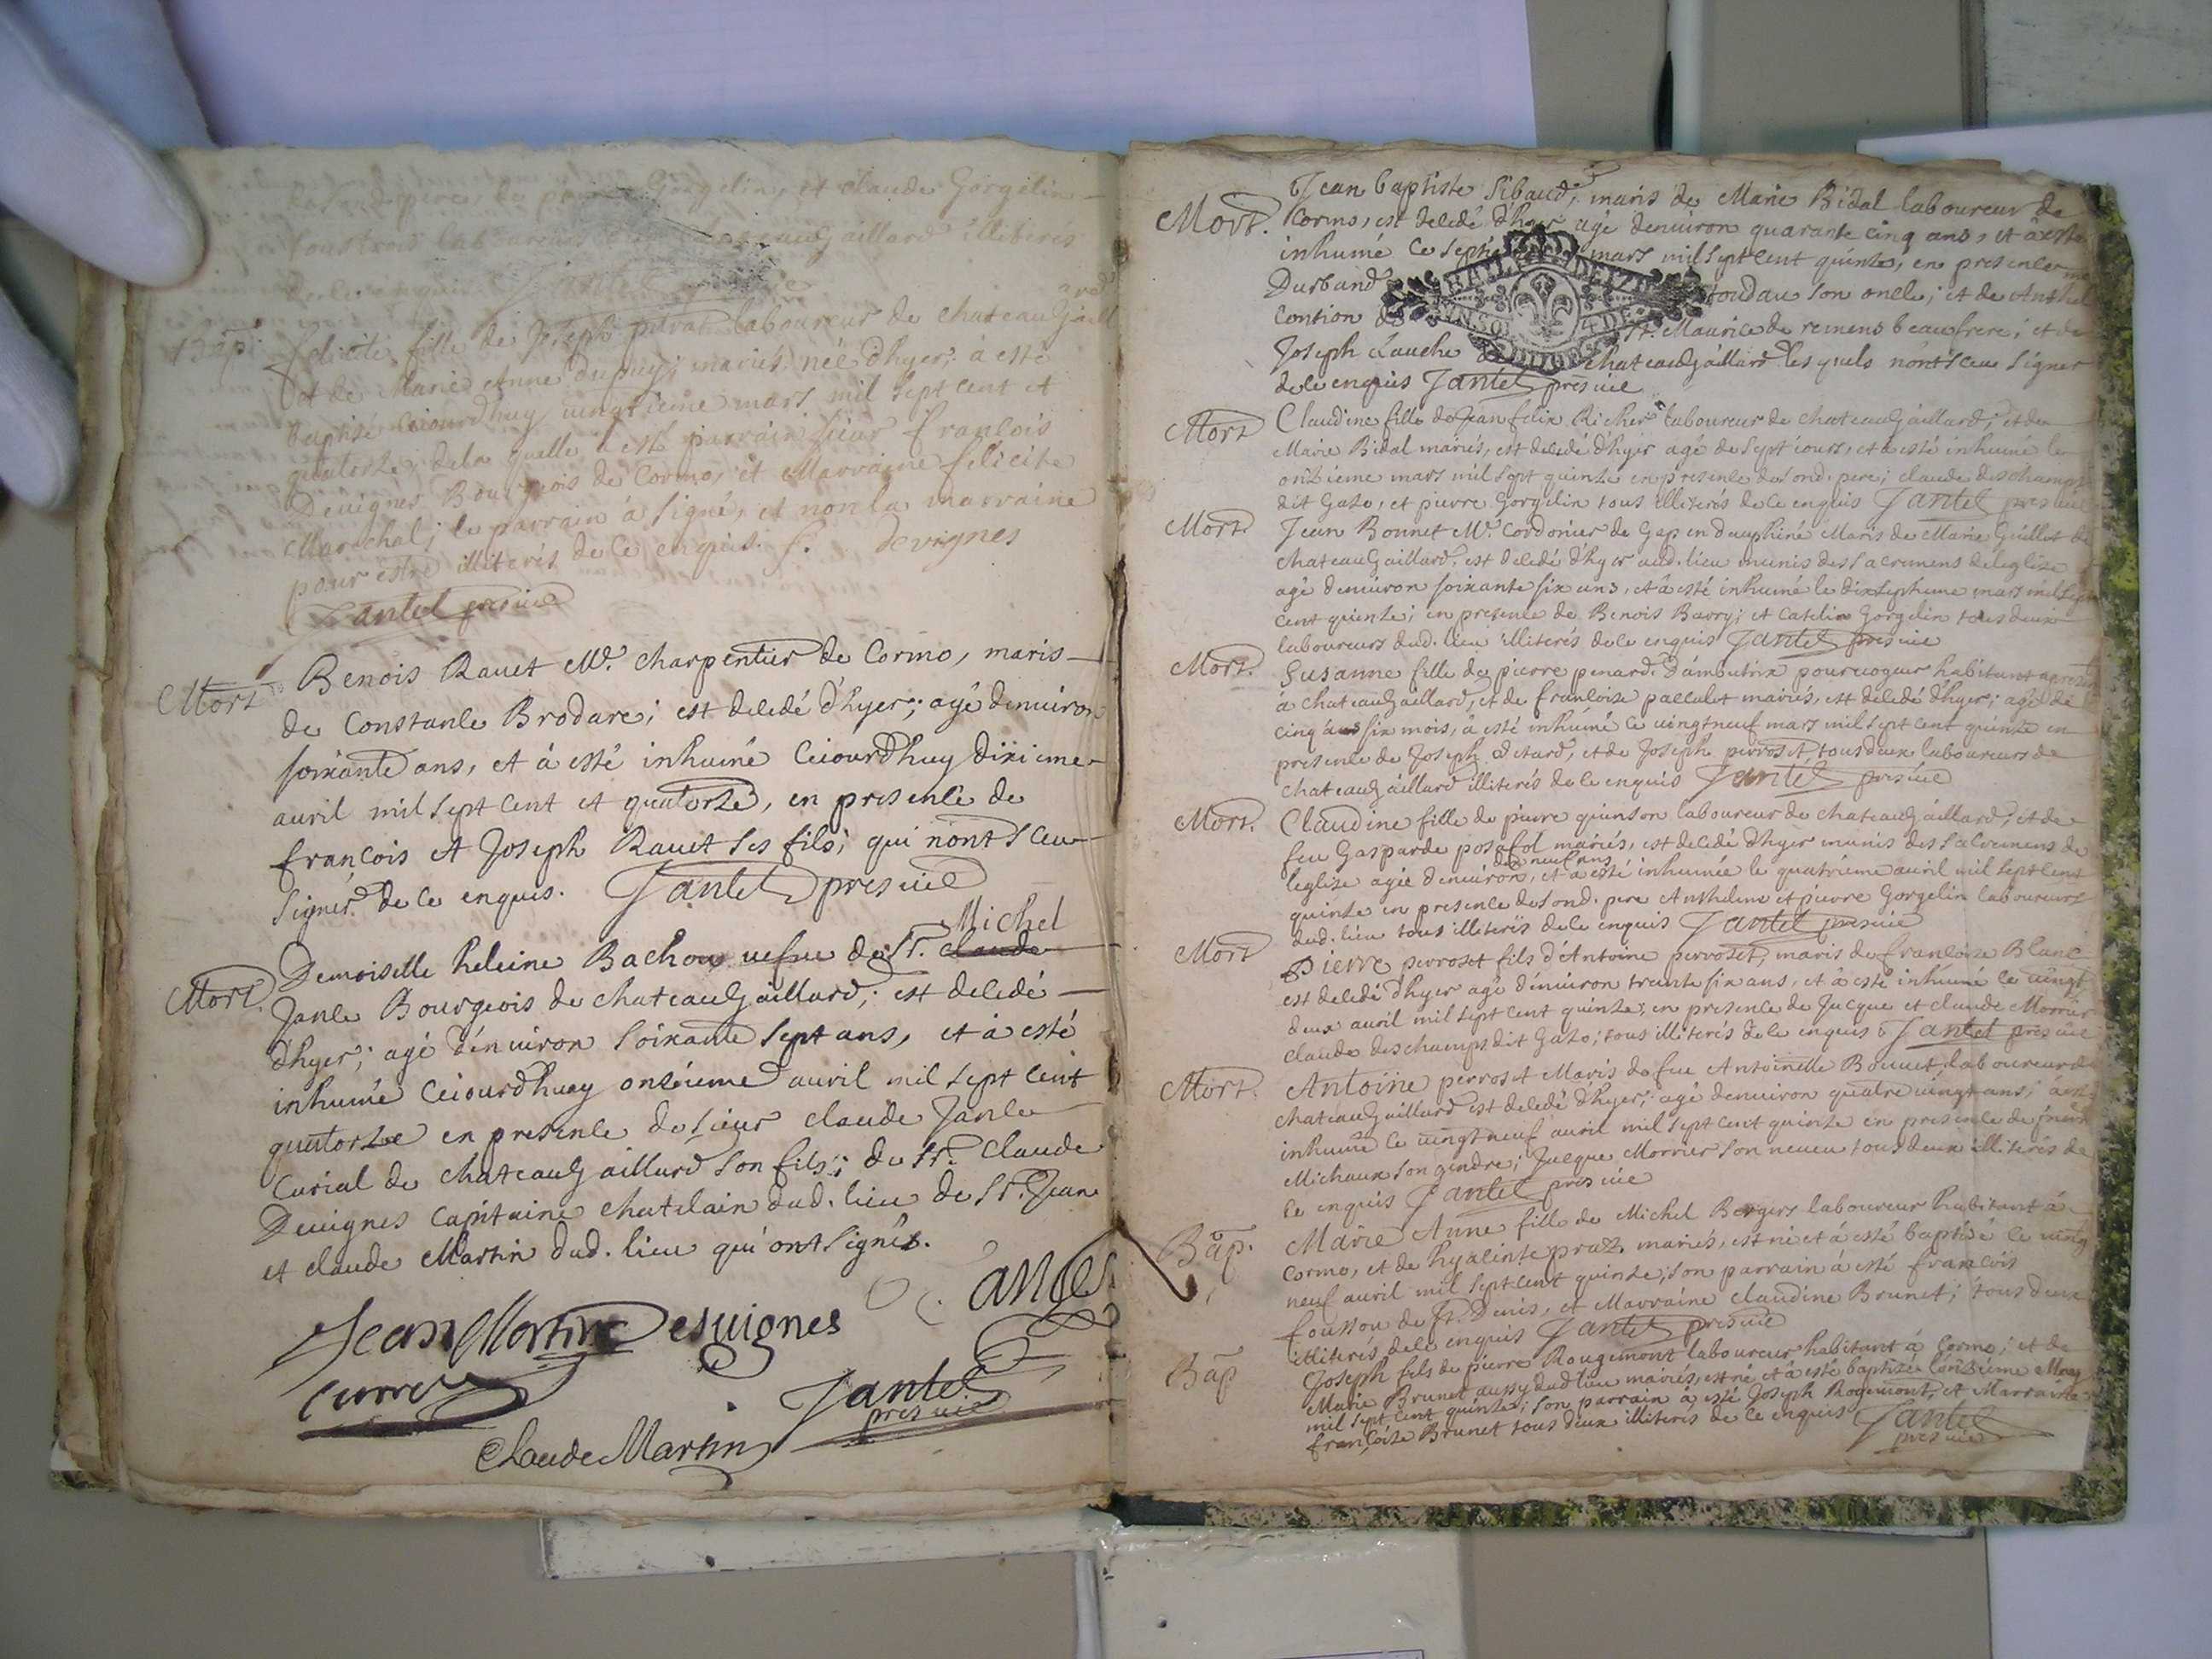 Gorgelin, et claude Gorgelin
illiterés
Bap. felicité fille de Joseph laboureur de chateaugaill
ard
et de Marie Anne dupuy; mariés née d'hyer; à esté
baptisé ceiourdhuy uingtieme mars mil sept cent et
quatorze, dela quelle à esté parrain sieur françois
Deuignes Bourgeois de Cormo, et Marraine felicite
Marechal; le parrain à signé, et non la marraine
pour estre illiterés de ce enquis. f. devignes
Jantet pres uic
Mort Benois Rauet Me. charpentier de Cormo, maris
de Constance Brodare; est decedé d'hyer; agé denuiron
soixante ans, et à esté inhumé Ceiourdhuy dixieme
auril mil sept cent et quatorze, en presence de
françois et Joseph Rauet ses fils; qui nont sceu
signer de ce enquis. Jantet pres uic
Michel
Mort. Demoiselle heleine Bachou uefue de Sr. claude
Janle Bourgeois de chateaugaillard; est decedé
d'hyer; agé d'enuiron soixante sept ans, et à esté
inhumé Ceiourdhuy onzieme auril mil sept cent
quatorze en presence de sieur claude Janle
Curial de chateaugaillard son fils; de Sr. Claude
Deuignes Capitaine chatelain dud. lieu de Sr. Jean
et claude Martin dud. lieu qui ont signés.
Jean Martin Desuignes
Jantet
pres uic
Claude Martin
Mort. Jean baptiste Sibaud, maris de Marie Bidal laboureur de
Cormo, est decedé d'hyer agé denuiron quarante cinq ans, et à esté
inhumé ce mars mil sept cent quinze, en presence
Durband son oncle; et de
contion St. Maurice de remens beaufrere; et de
Joseph Lauche chateaugaillard lesquels n'ont sceu signer
de ce enquis Jantet pres uic
Mort Claudine fille de Jean felix Richer laboureur de chateaugaillard; et de
Marie Bidal mariés, est decedé d'hyer agé de sept iours, et à esté inhumé le
onzieme mars mil sept quinze en presence de sond. pere; claude deschamps
dit Gazo, et pierre Gorgelin tous illiterés de ce enquis Jantet pres uic
Mort. Jean Bonnet Me. Cordonier de Gap en dauphiné Maris de Marie Guillot de
chateaugaillard, est decedé d'hyer aud. lieu munis des sacremens deleglise
agé denuiron soixante six ans, et à esté inhumé le dixseptieme mars mil sept
cent quinze; en presence de Benois Barry; et Catelin Gorgelin tous deux
laboureurs dud. lieu illiterés de ce enquis Jantet pres uic
Mort. Susanne fille de pierre penard d'ambutrix pouruoyeur habitant apresent
à chateaugaillard, et de françoise paccalet mariés, est decedé d'hyer; agé de
cinq ans six mois, à esté inhumé ce uingtneuf mars mil sept cent quinze en
presence de Joseph et de Joseph perroset tous deux laboureurs de
chateaugaillard illiterés de ce enquis Jantet pres uic
Mort. Claudine fille de pierre quinson laboureur de chateaugaillard; et de
feu Gasparde posafol mariés, est decedé d'hyer munis des sacremens de
dix neuf ans
leglise agée denuiron, et à esté inhumée le quatrieme auril mil sept cent
quinze en presence de sond. pere Anthelme et pierre Gorgelin laboureurs
dud. lieu tous illiterés de ce enquis Jantet pres uic
Mort Pierre perroset fils d'Antoine perroset, maris de françoise Blanc
est decedé d'hyer agé d'enuiron trente six ans, et à esté inhumé ce uingt
deux auril mil sept cent quinze; en presence de Jacque et claude Morrier
claude deschamps dit Gazo; tous illiterés de ce enquis Jantet pres uic
Mort. Antoine perroset Maris de feu Antoinette Bouuet, laboureur de
chateaugaillard est decedé d'hyer; agé denuiron quatre uingt ans; à esté
inhumé ce uingtneuf auril mil sept cent quinze en presence de
Michaux son gendre; Jacque Morrier son neueu tous deux illiterés de
ce enquis Jantet pres uic
Bap. Marie Anne fille de Michel Bergers laboureur habitant à
Cormo, et de hyacinte mariés, est né et à esté baptisé le uingt
neuf auril mil sept cent quinze; son parrain à esté francois
foussou de St. Denis, et Marraine claudine Brunet; tous deux
illiterés de ce enquis Jantet pres uic
Bap Joseph fils de pierre Rougemont laboureur habitant à Cormo; et de
Marie Brunet aussy dud lieu mariés, est né et à esté baptisé l'onzieme May
mil sept cent quinze; son parrain à esté Joseph Rogemont, et Marraine
françoise Brunet tous deux illiteris de ce enquis Jantet
pres uic